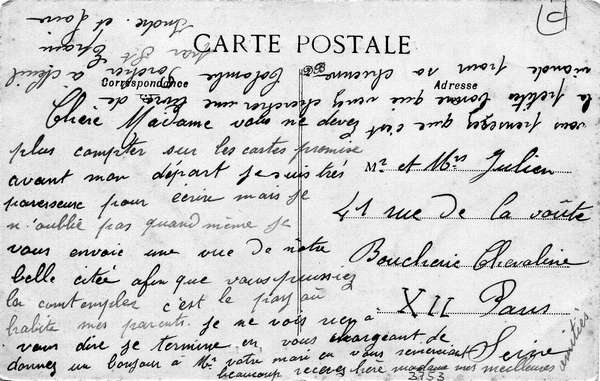 CARTE POSTALE
Correspondance
Adresse
Chère Madame vous ne devez
plus compter sur les cartes promise
avant mon départ je suis très
paresseuse pour écrire mais je
n'oublié pas quand même je
vous envoie une vue de notre
belle citée afin que vous puissiez
la comtempler c'est le pays où
habite mes parents. je ne vois rien a
vous dire je termine en vous chargeant de
donnez un bonjour à Mr votre mari en vous remerciant
beaucoup recevez chère madame mes meilleures
amitiés
Mr et Mrs Julien
41 rue de la voûte
Boucherie Chevaline
XII Paris
Seine
3953
vous pensez que c'est
la petite bonne que venez chercher une livre de
viande pour sa chienne
Colombe
André et